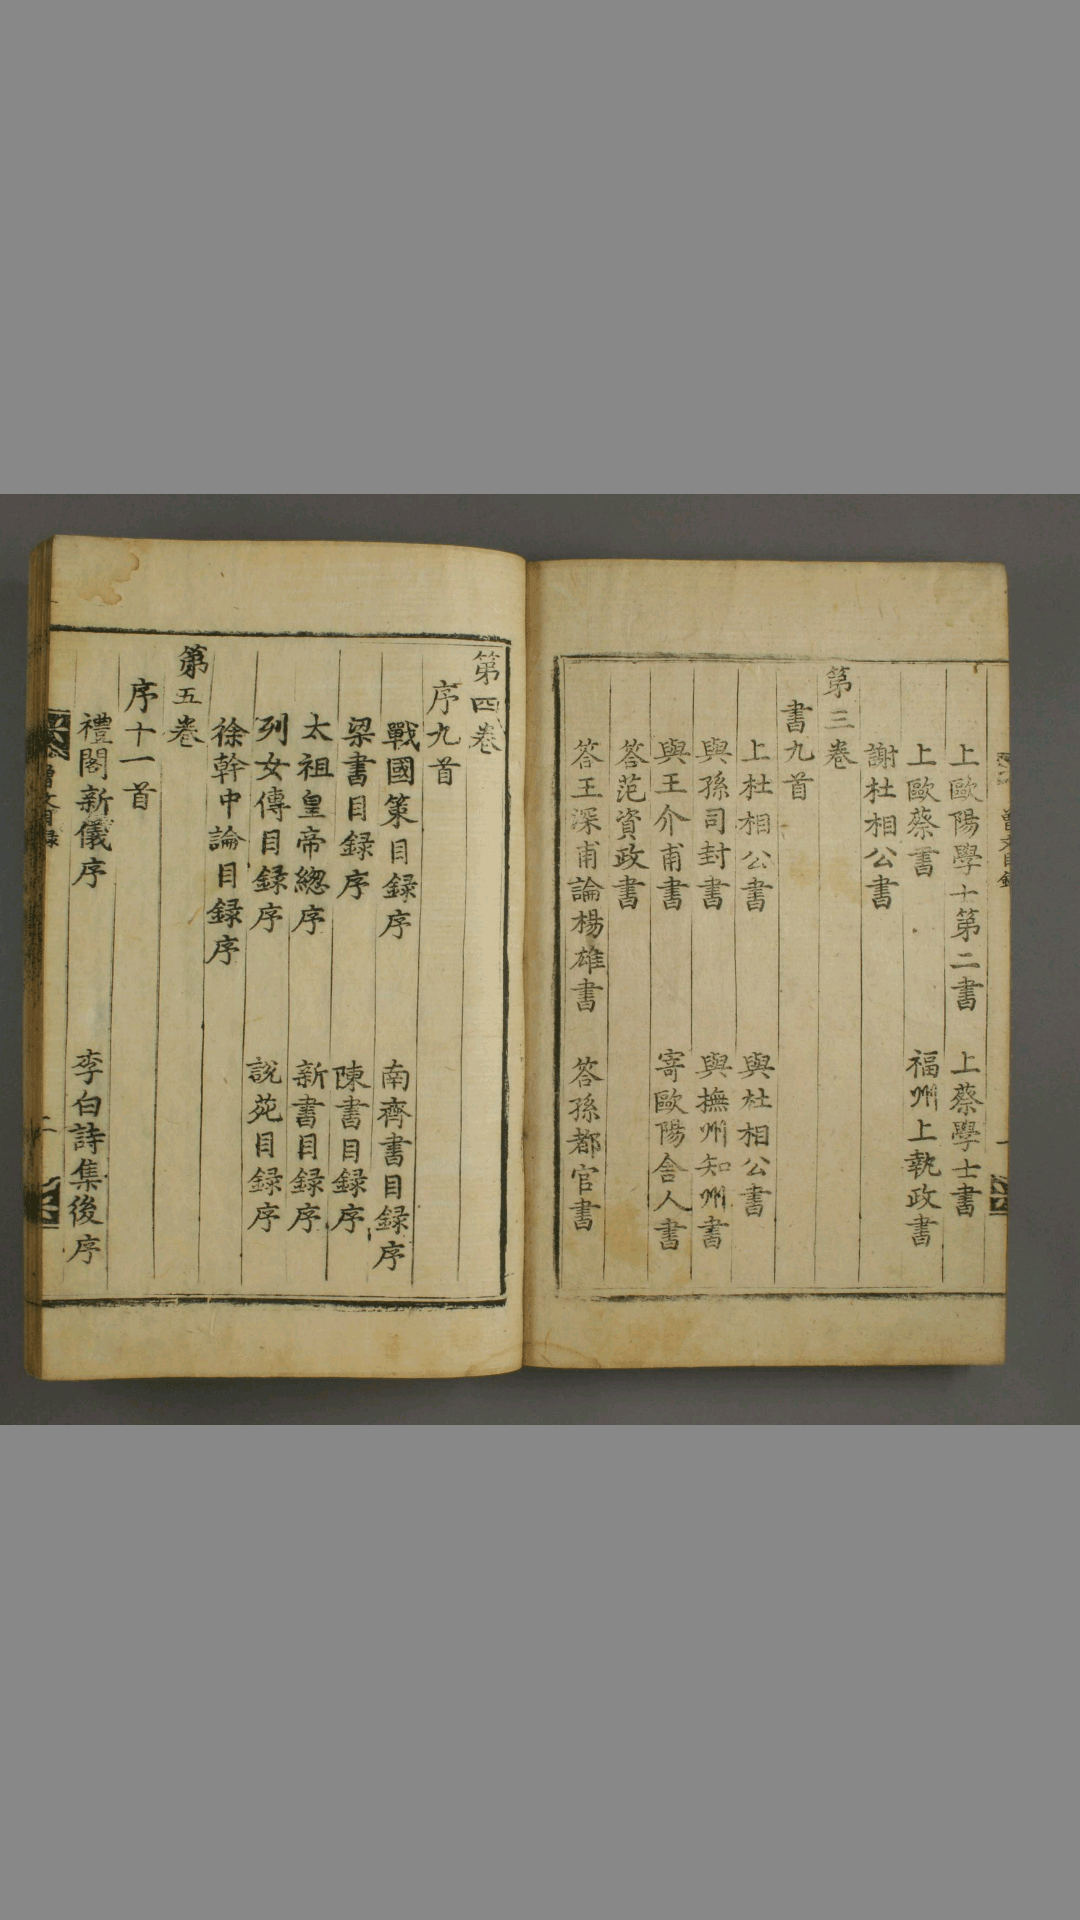 上歐陽學士第二書 上蔡學士書
上歐蔡書 福州上執政書
謝杜相公書
第三卷
書九首
上杜相公書 與杜相公書
與孫司封書 與撫州知州書
與王介甫書 寄歐陽舍人書
答范資政書
答王深甫論楊雄書 答孫都官書
第四卷
序九首
戰國策目録序 南齊書目録序
梁書目録序 陳書目録序
太祖皇帝總序 新書目録序
列女傳目録序 說苑目録序
徐幹中論目録序
第五卷
序十一首
禮閣新儀序 李白詩集後序
二